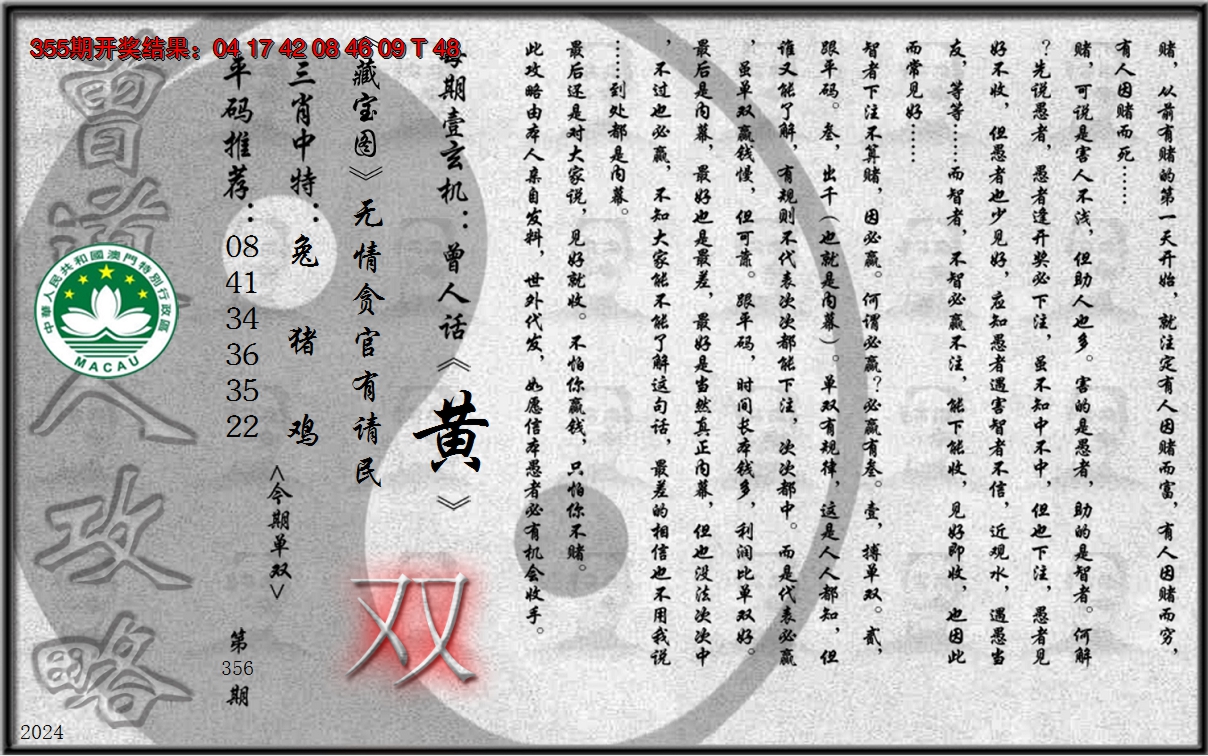 355期开奖结果：04 17 42 08 46 09 T 48
赌，从前有赌的第一天开始，就注定有人因赌而富，有人因赌而穷，
有人因赌而死……
赌，可说是害人不浅，但助人也多。害的是愚者，助的是智者。何解
？先说愚者，愚者逢开奖必下注，虽不知中不中，但也下注，愚者见
好不收，但愚者也少见好，应知愚者遇害智者不信，近观水，遇愚当
友，等等……而智者，不智必赢不注，能下能收，见好即收，也因此
而常见好……
智者下注不算赌，因必赢。何谓必赢？必赢有叁。壹，搏单双。贰，
跟平码。叁，出千（也就是内幕）。单双有规律，这是人人都知，但
谁又能了解，有规则不代表次次都能下注，次次都中。而是代表必赢
，虽单双赢钱慢，但可靠。跟平码，时间长本钱多，利润比单双好。
最后是内幕，最好也是最差，最好是当然真正内幕，但也没法次次中
，不过也必赢，不知大家能不能了解这句话，最差的相信也不用我说
……到处都是内幕。
最后还是对大家说，见好就收。不怕你赢钱，只怕你不赌。
此攻略由本人亲自发料，世外代发，如愿信本愚者必有机会收手。
每期壹玄机：曾人话《黄》
《藏宝图》无情贪官有请民
双
三肖中特：兔 猪 鸡
<今期单双>
平码推荐：08 41 34 36 35 22
第356期
曾道人攻略
中華人民共和國澳門特別行政區
MACAU
2024